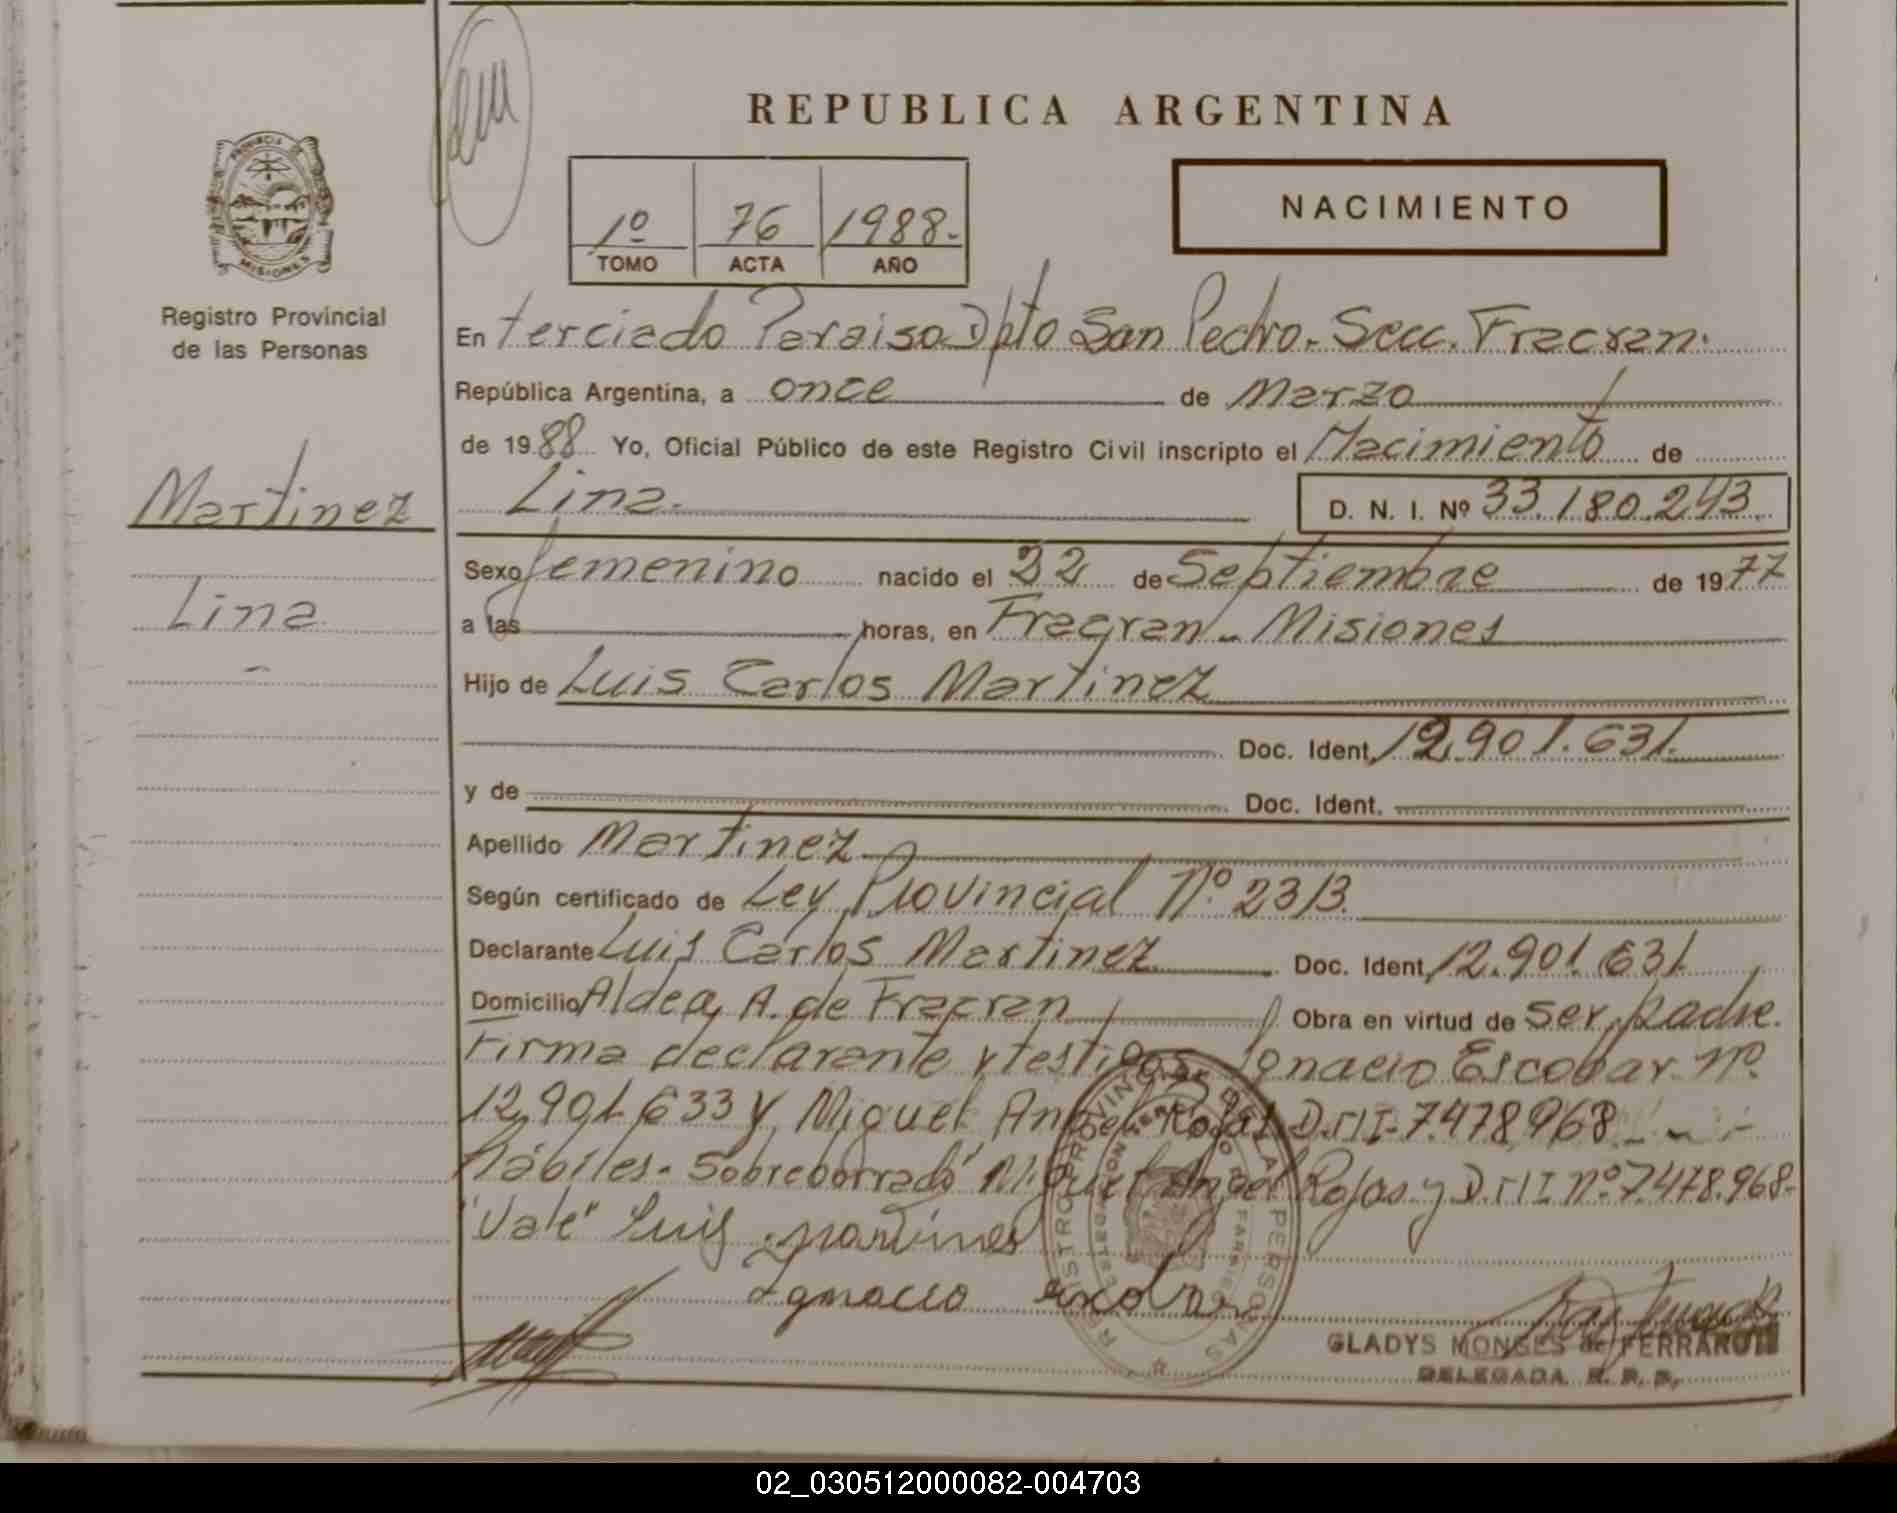 REPUBLICA ARGENTINA
1º 76 1988.-
TOMO ACTA AÑO
NACIMIENTO
PROVINCIA DE
MISIONES
Registro Provincial
de las Personas
Martinez
Lina
En terciado Paraiso Dpto San Pedro. Secc. Fracran.
República Argentina, a once de Marzo
de 1988 Yo, Oficial Público de este Registro Civil inscripto el Nacimiento de
Lina. D. N. I. Nº 33.180.243.
Sexo femenino nacido el 22 de Septiembre de 1977
a las horas, en Fracran - Misiones
Hijo de Luis Carlos Martinez
Doc. Ident. 12.901.631.
y de Doc. Ident.
Apellido Martinez
Según certificado de Ley Provincial Nº 2313.
Declarante Luis Carlos Martinez Doc. Ident. 12.901.631
Domicilio Aldea A. de Fracran Obra en virtud de ser padre.
Firma declarante y testigos Ignacio Escobar. nº
12.901.633 y Miguel Angel Rojas D.N.I. 7.478.968
hábiles - Sobreborrado Miguel Angel Rojas y D.N.I nº 7.478.968-
"Vale" Luis martines
Ignacio
REGISTRO PROVINCIAL DE LAS PERSONAS
GLADYS MONGES de FERRAROTTI
DELEGADA R. P. P.
02_030512000082-004703